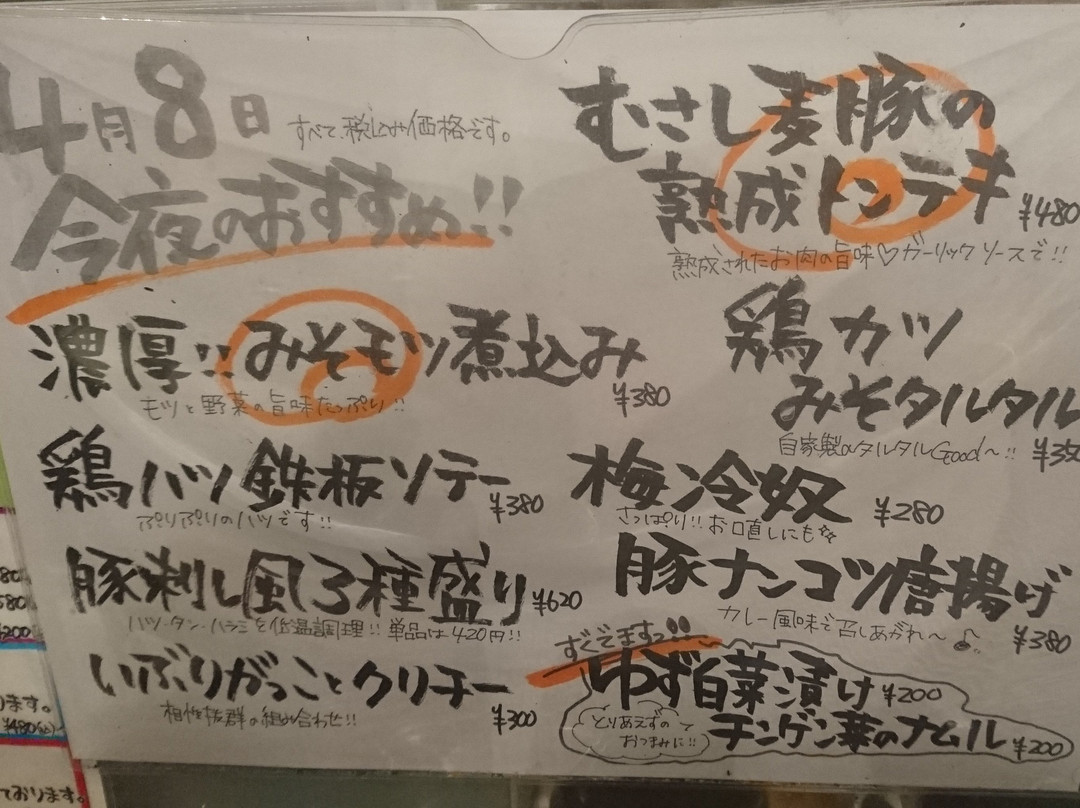 4月8日
すべて税込み価格です。
今夜のおすすめ!!
濃厚!!みそモツ煮込み
¥380
モツと野菜の旨味たっぷり!!
鶏ハツ鉄板ソテー
¥380
ぷりぷりのハツです!!
豚刺し風3種盛り ¥620
ハツ・タン・ハラミを低温調理!! 単品は420円!!
いぶりがっことクリチー
¥300
相性抜群の組み合わせ!!
むさし麦豚の
熟成トンテキ ¥480
熟成されたお肉の旨味♡ガーリックソースで!!
鶏カツ
みそタルタル
自家製のタルタルGood〜!!
梅冷奴 ¥280
さっぱり!!お口直しにも
豚ナンコツ唐揚げ
¥380
カレー風味で召しあがれ〜♪
すぐでますっ!!
ゆず白菜漬け ¥200
チンゲン菜のナムル ¥200
とりあえずの
おつまみに!!
580
¥200
ります。
¥480(込)
ております。